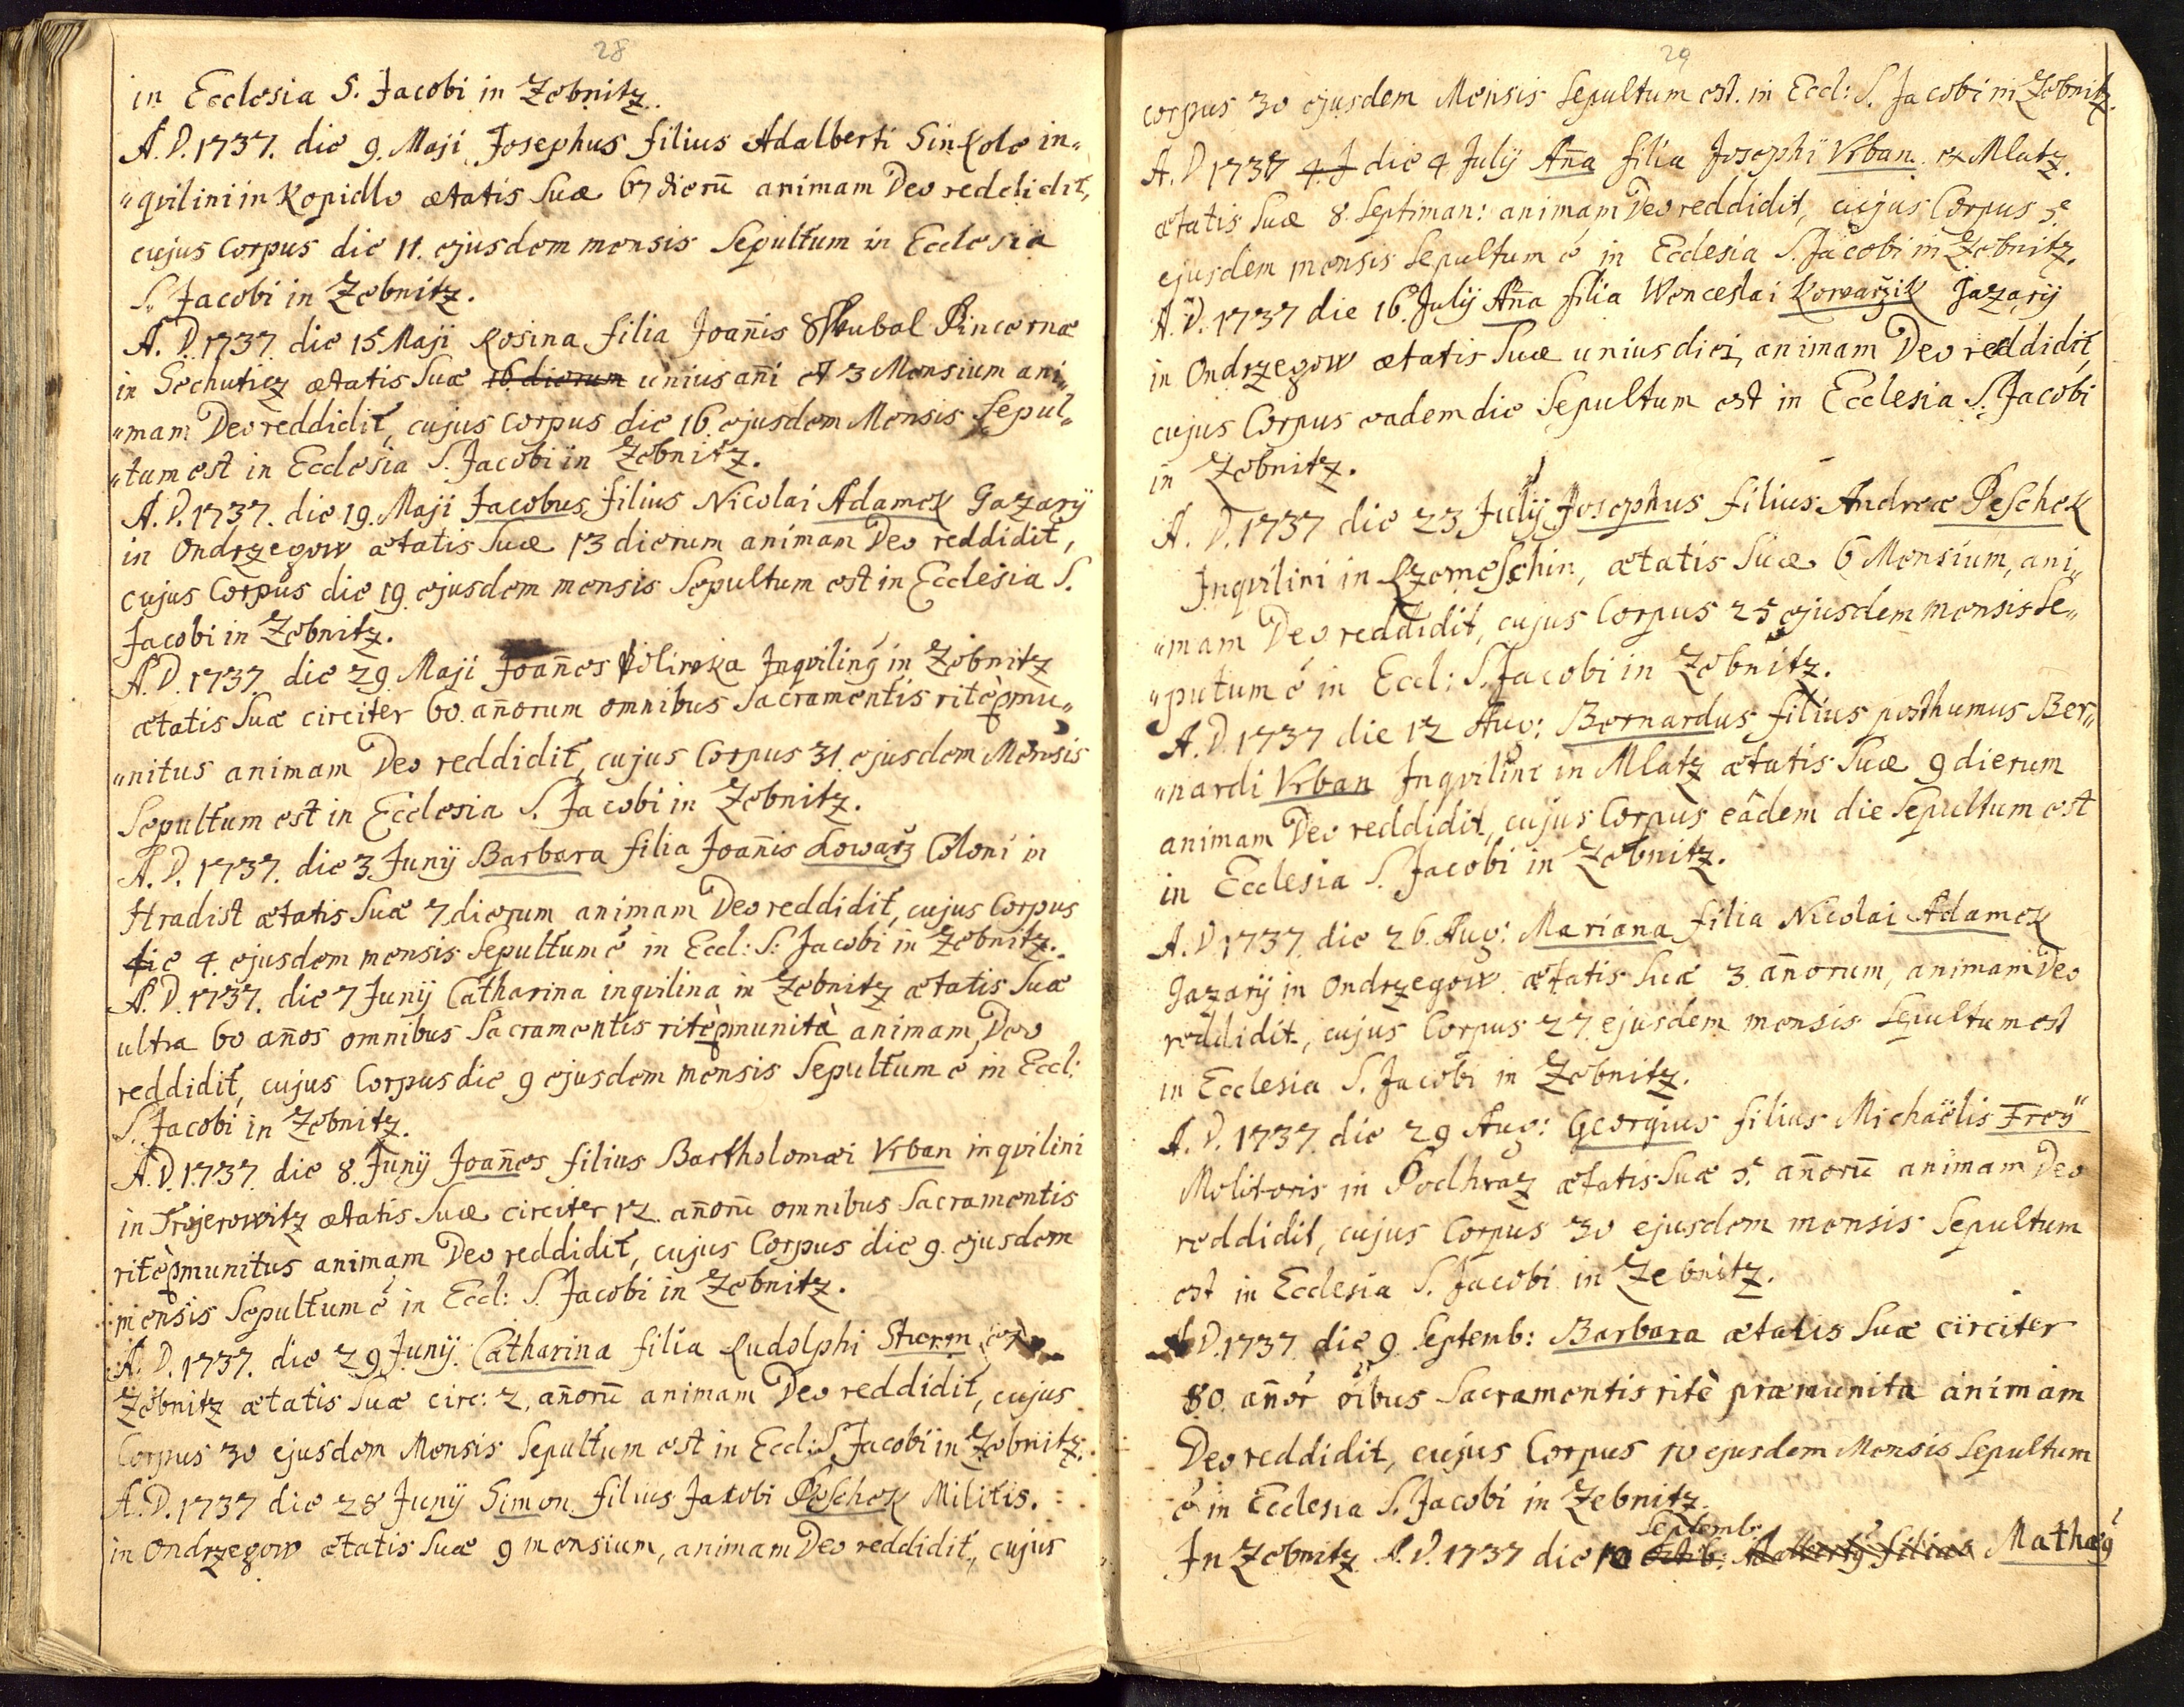 28
in Ecclesia S. Jacobi in Zebnitz.
A. D. 1737. die 9. Maji Josephus filius Adalberti Sinkole in„
„qvilini in Kopidlo ætatis Suæ 67 dierũ animam Deo reddidit,
cujus Corpus die 11. ejusdem mensis Sepultum in Ecclesia
S. Jacobi in Zebnitz.
A. D. 1737. die 15 Maji Rosina filia Joan̄is Skubal Pincernæ
in Sechuticz ætatis Suæ 16 dierum unius an̄i et 3 Mensium ani„
„mam Deo reddidit, cujus Corpus die 16 ejusdem Mensis Sepul„
„tum est in Ecclesia S. Jacobi in Zebnitz.
A. D. 1737. die 19. Maji Jacobus filius Nicolai Adamek Gazarÿ
in Ondrzegow ætatis Suæ 13 dierum animam Deo reddidit,
cujus Corpus die 19 ejusdem mensis Sepultum est in Ecclesia S.
Jacobi in Zebnitz.
A. D. 1737. die 29. Maji Joan̄es Poliwka Inqviling in Zebnitz
ætatis Suæ circiter 60. an̄orum omnibus Sacramentis ritè pmu„
„nitus animam Deo reddidit, cujus Corpus 31. ejusdem Mensis
Sepultum est in Ecclesia S. Jacobi in Zebnitz.
A. D. 1737. die 3 Junÿ Barbara filia Joan̄is Kowarz Coloni in
Hradist ætatis Suæ 7 dierum animam Deo reddidit, cujus Corpus
die 4. ejusdem mensis Sepultum ē in Eccl: S: Jacobi in Zebnitz.
A. D. 1737. die 7 Junÿ Catharina inqvilina in Zebnitz ætatis Suæ
ultra 60 an̄os omnibus Sacramentis ritè pmunità animam Deo
reddidit, cujus Corpus die 9 ejusdem mensis Sepultum ē in Eccl:
S. Jacobi in Zebnitz.
A. D. 1737. die 8. Junÿ Joan̄es filius Bartholomæi Vrban inqvilini
in Trojerowitz ætatis Suæ circiter 12. an̄orũ omnibus Sacramentis
ritè pmunitus animam Deo reddidit, cujus Corpus die 9. ejusdem
mensis Sepultum ē in Eccl: S. Jacobi in Zebnitz.
A. D. 1737. die 29 Junÿ. Catharina filia Rudolphi Sturm ex
Zebnitz ætatis Suæ circ: 2. an̄orũ animam Deo reddidit, cujus
Corpus 30 ejusdem Mensis Sepultum est in Eccl: S. Jacobi in Zebnitz.
A. D. 1737 die 28 Junÿ Simon filius Jacobi Peschek Militis.
in Ondrzegow ætatis Suæ 9 mensium, animam Deo reddidit, cujus
29
corpus 30 ejusdem Mensis Sepultum est. in Eccl: S. Jacobi in Zebnitz.
A. D 1737 4. J die 4 Julÿ An̄a filia Josephi Vrban ex Mlatz.
ætatis Suæ 8 Septiman: animam Deo reddidit, cujus Corpus 5
ejusdem mensis Sepultum ē in Ecclesia S. Jacobi in Zebnitz.
A. D. 1737 die 16. Julÿ An̄a filia Wenceslai Kowarzik Gazarÿ
in Ondrzegow ætatis Suæ unius diei, animam Deo reddidit,
cujus Corpus eadem die Sepultum est in Ecclesia S. Jacobi
in Zebnitz.
A. D. 1737 die 23 Julÿ Josephus filius Andreæ Peschek
Inqvilini in Rzemeschin, ætatis Suæ 6 Mensium, ani„
„mam Deo reddidit, cujus Corpus 25 ejusdem mensis Se„
„putum ē in Eccl: S. Jacobi in Zebnitz.
A. D. 1737 die 12 Aug: Bernardus filius posthumus Ber„
„nardi Vrban Inqvilini in Mlatz ætatis Suæ 9 dierum
animam Deo reddidit, cujus Corpus eâdem die Sepultum est
in Ecclesia S. Jacobi in Zebnitz.
A. D 1737. die 26. Aug: Mariana filia Nicolai Adamek
Gazarÿ in Ondrzegow ætatis Suæ 3. an̄orum, animam Deo
reddidit, cujus Corpus 27. ejusdem mensis Sepultum est
in Ecclesia S. Jacobi in Zebnitz.
A. D. 1737. die 29 Aug: Georgius filius Michaëlis Freÿ
Molitoris in Podhraz ætatis Suæ 5. an̄orũ animam Deo
reddidit, cujus Corpus 30 ejusdem mensis Sepultum
est in Ecclesia S. Jacobi in Zebnitz.
A D. 1737. die 9 Septemb: Barbara ætatis Suæ circiter
80. an̄or oībus Sacramentis ritè præmunita animam
Deo reddidit, cujus Corpus 10 ejusdem Mensis Sepultum
ē in Ecclesia S. Jacobi in Zebnitz.
Septemb:
In Zebnitz A. D. 1737 die 10 Octob: Adalberty filius Mathæi